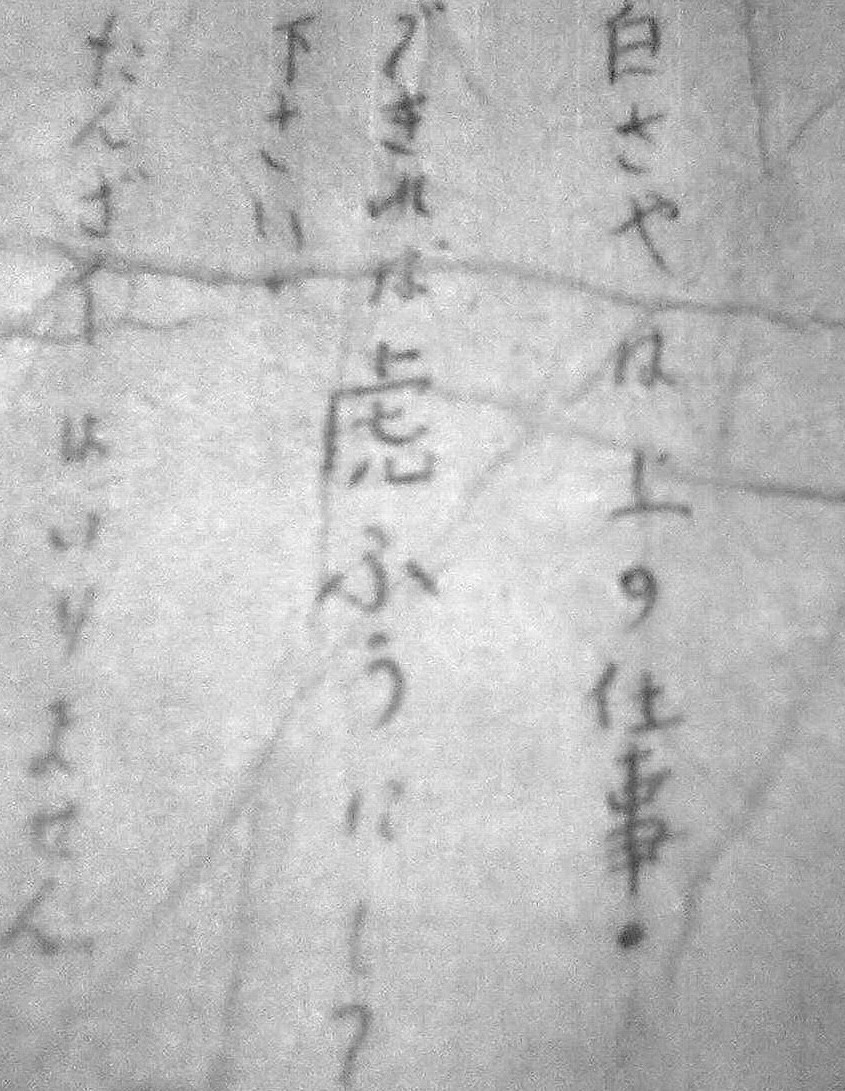 白さやは上の仕事・
できれば虎ふうにして
下さい
たんざイはいりません